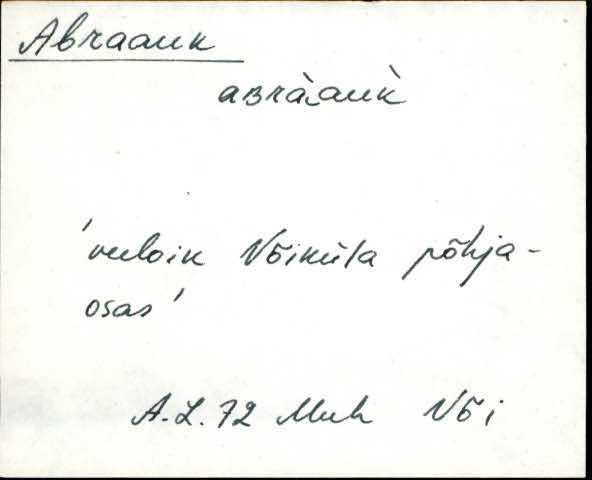 Abraauk
aʙràauk̀
'veeloik Võiküla põhja-
osas'
A.L. 72 Muh Või